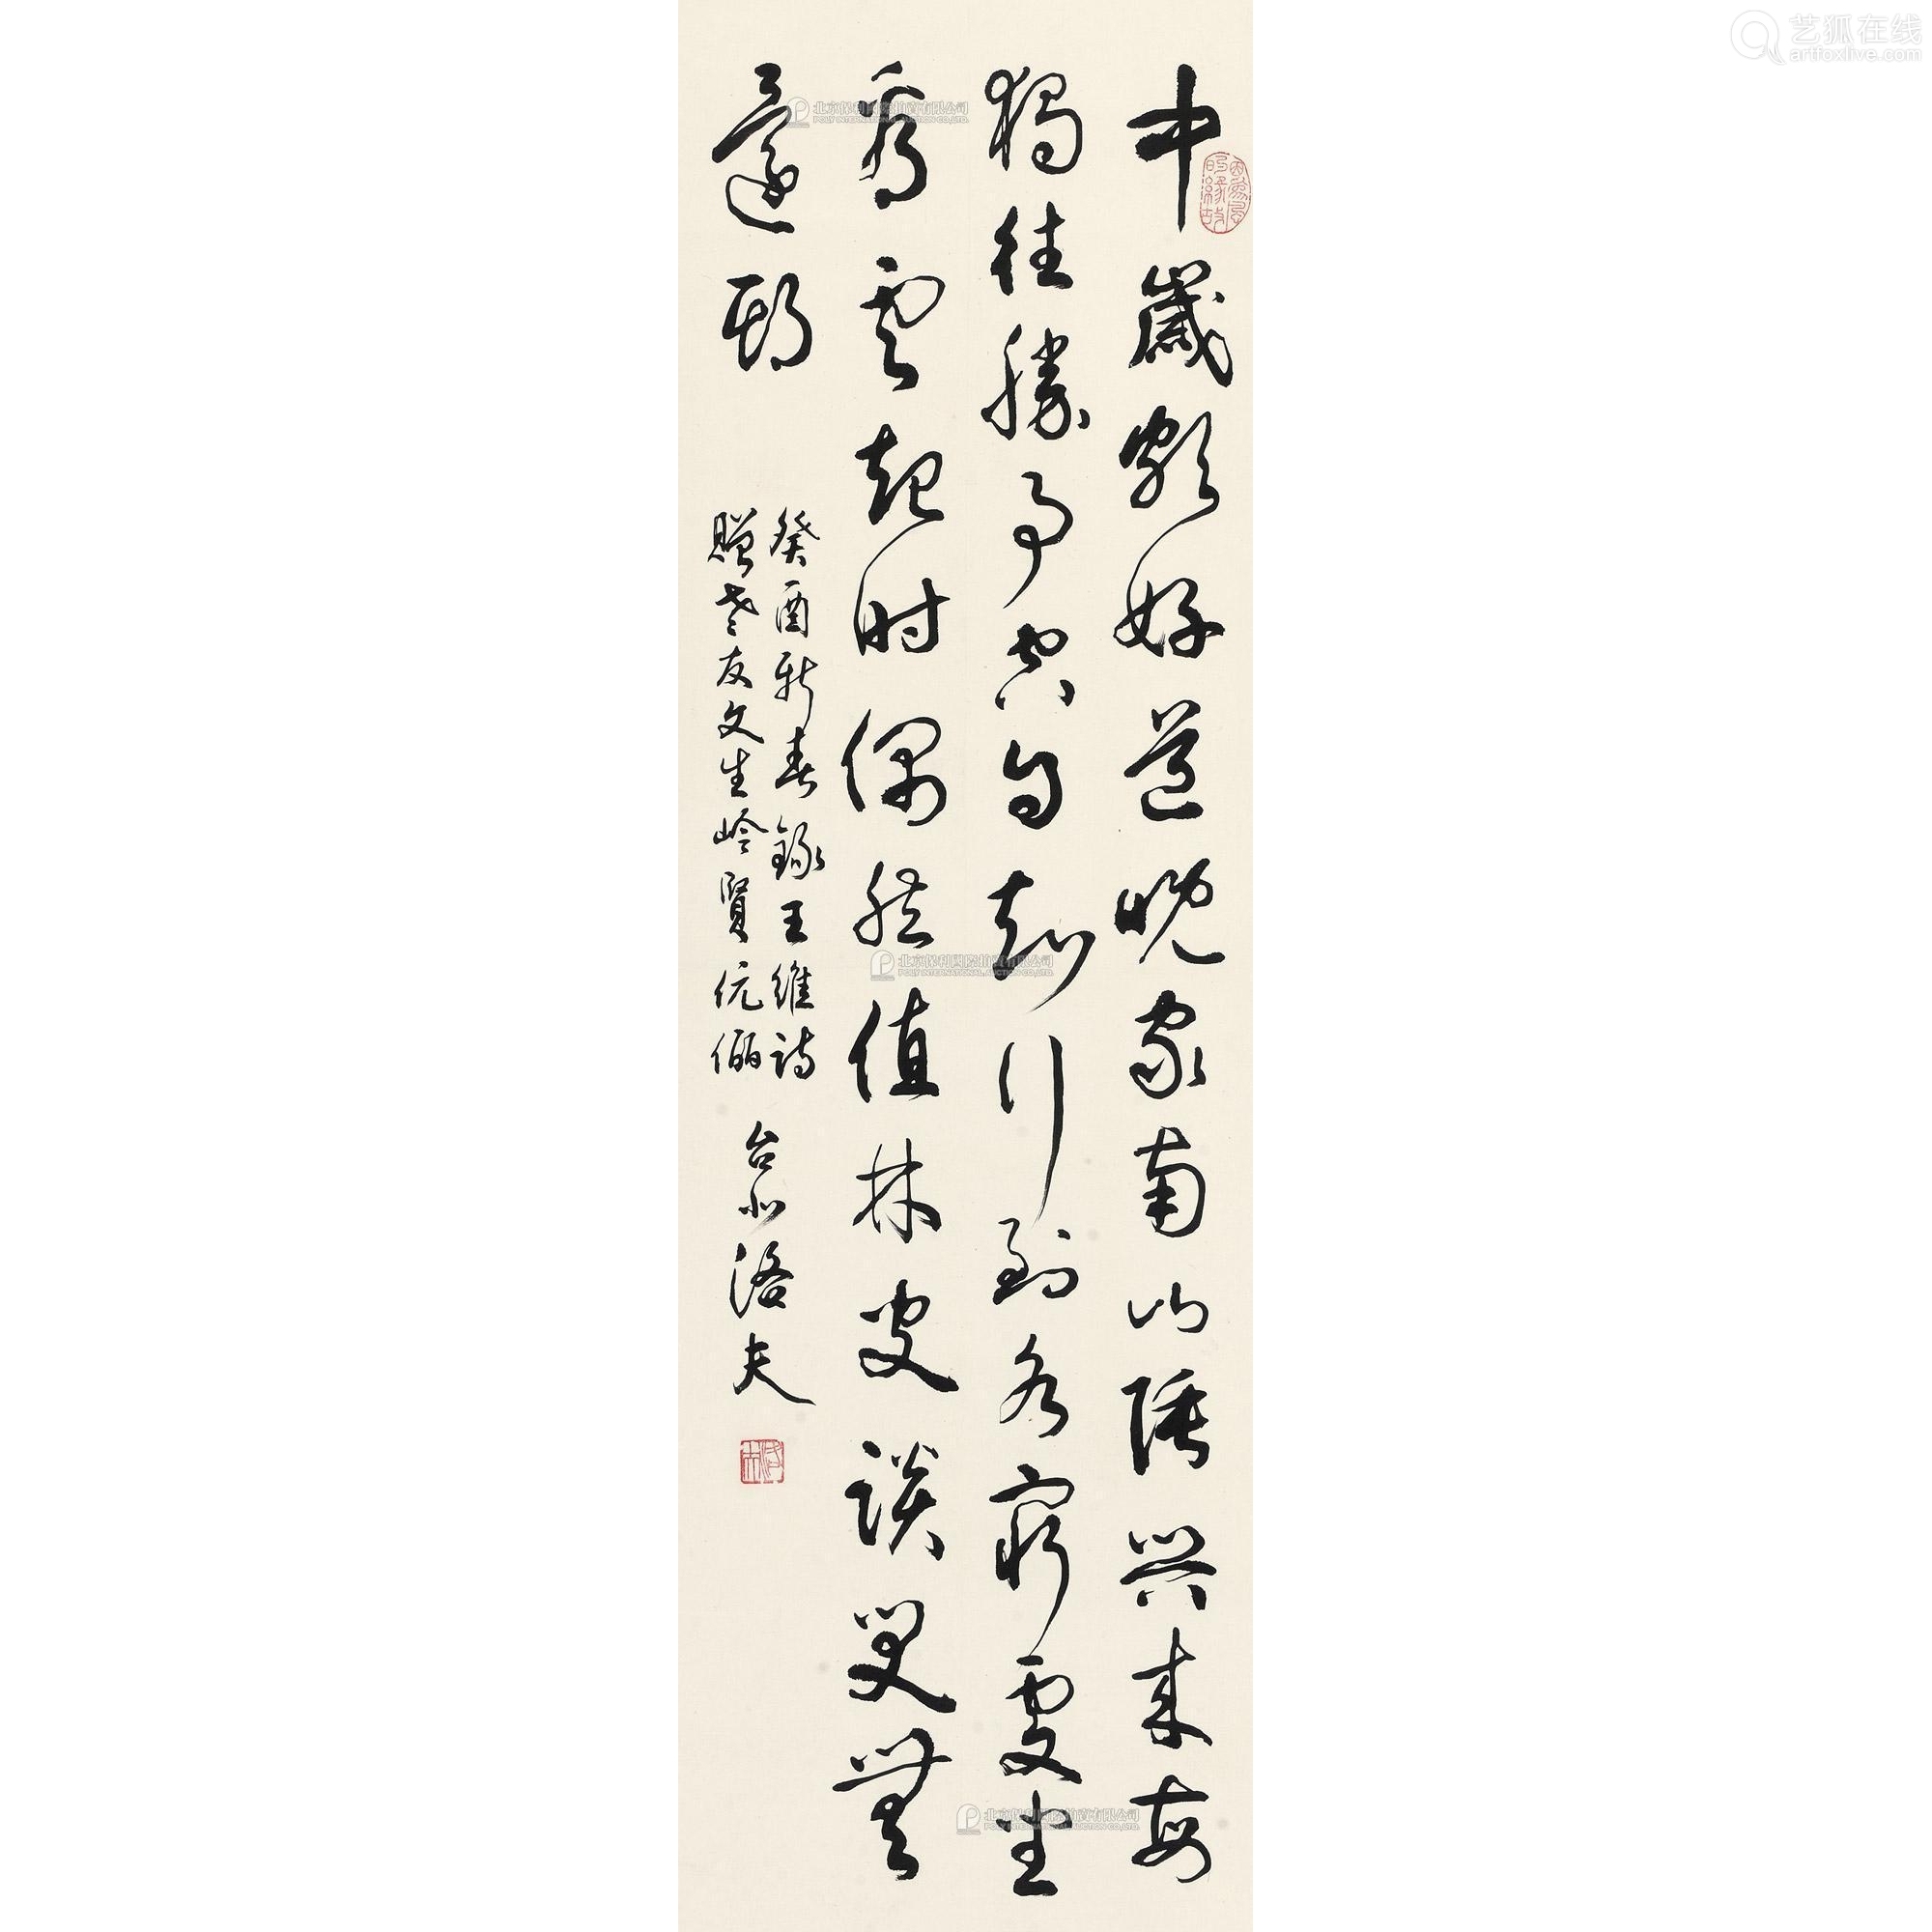 中歲頗好道晚家南山陲兴来每
獨往勝事空自知行到水窮處坐
看雲起时偶然值林叟談笑無
還期
癸酉新春錄王維詩
贈老友文生岭賢伉儷
台北洛夫
因為風的緣故
洛夫
艺狐在线
artfoxlive.com
北京保利國際拍賣有限公司
POLY INTERNATIONAL AUCTION CO.,LTD.
北京保利國際拍賣有限公司
POLY INTERNATIONAL AUCTION CO.,LTD.
北京保利國際拍賣有限公司
POLY INTERNATIONAL AUCTION CO.,LTD.